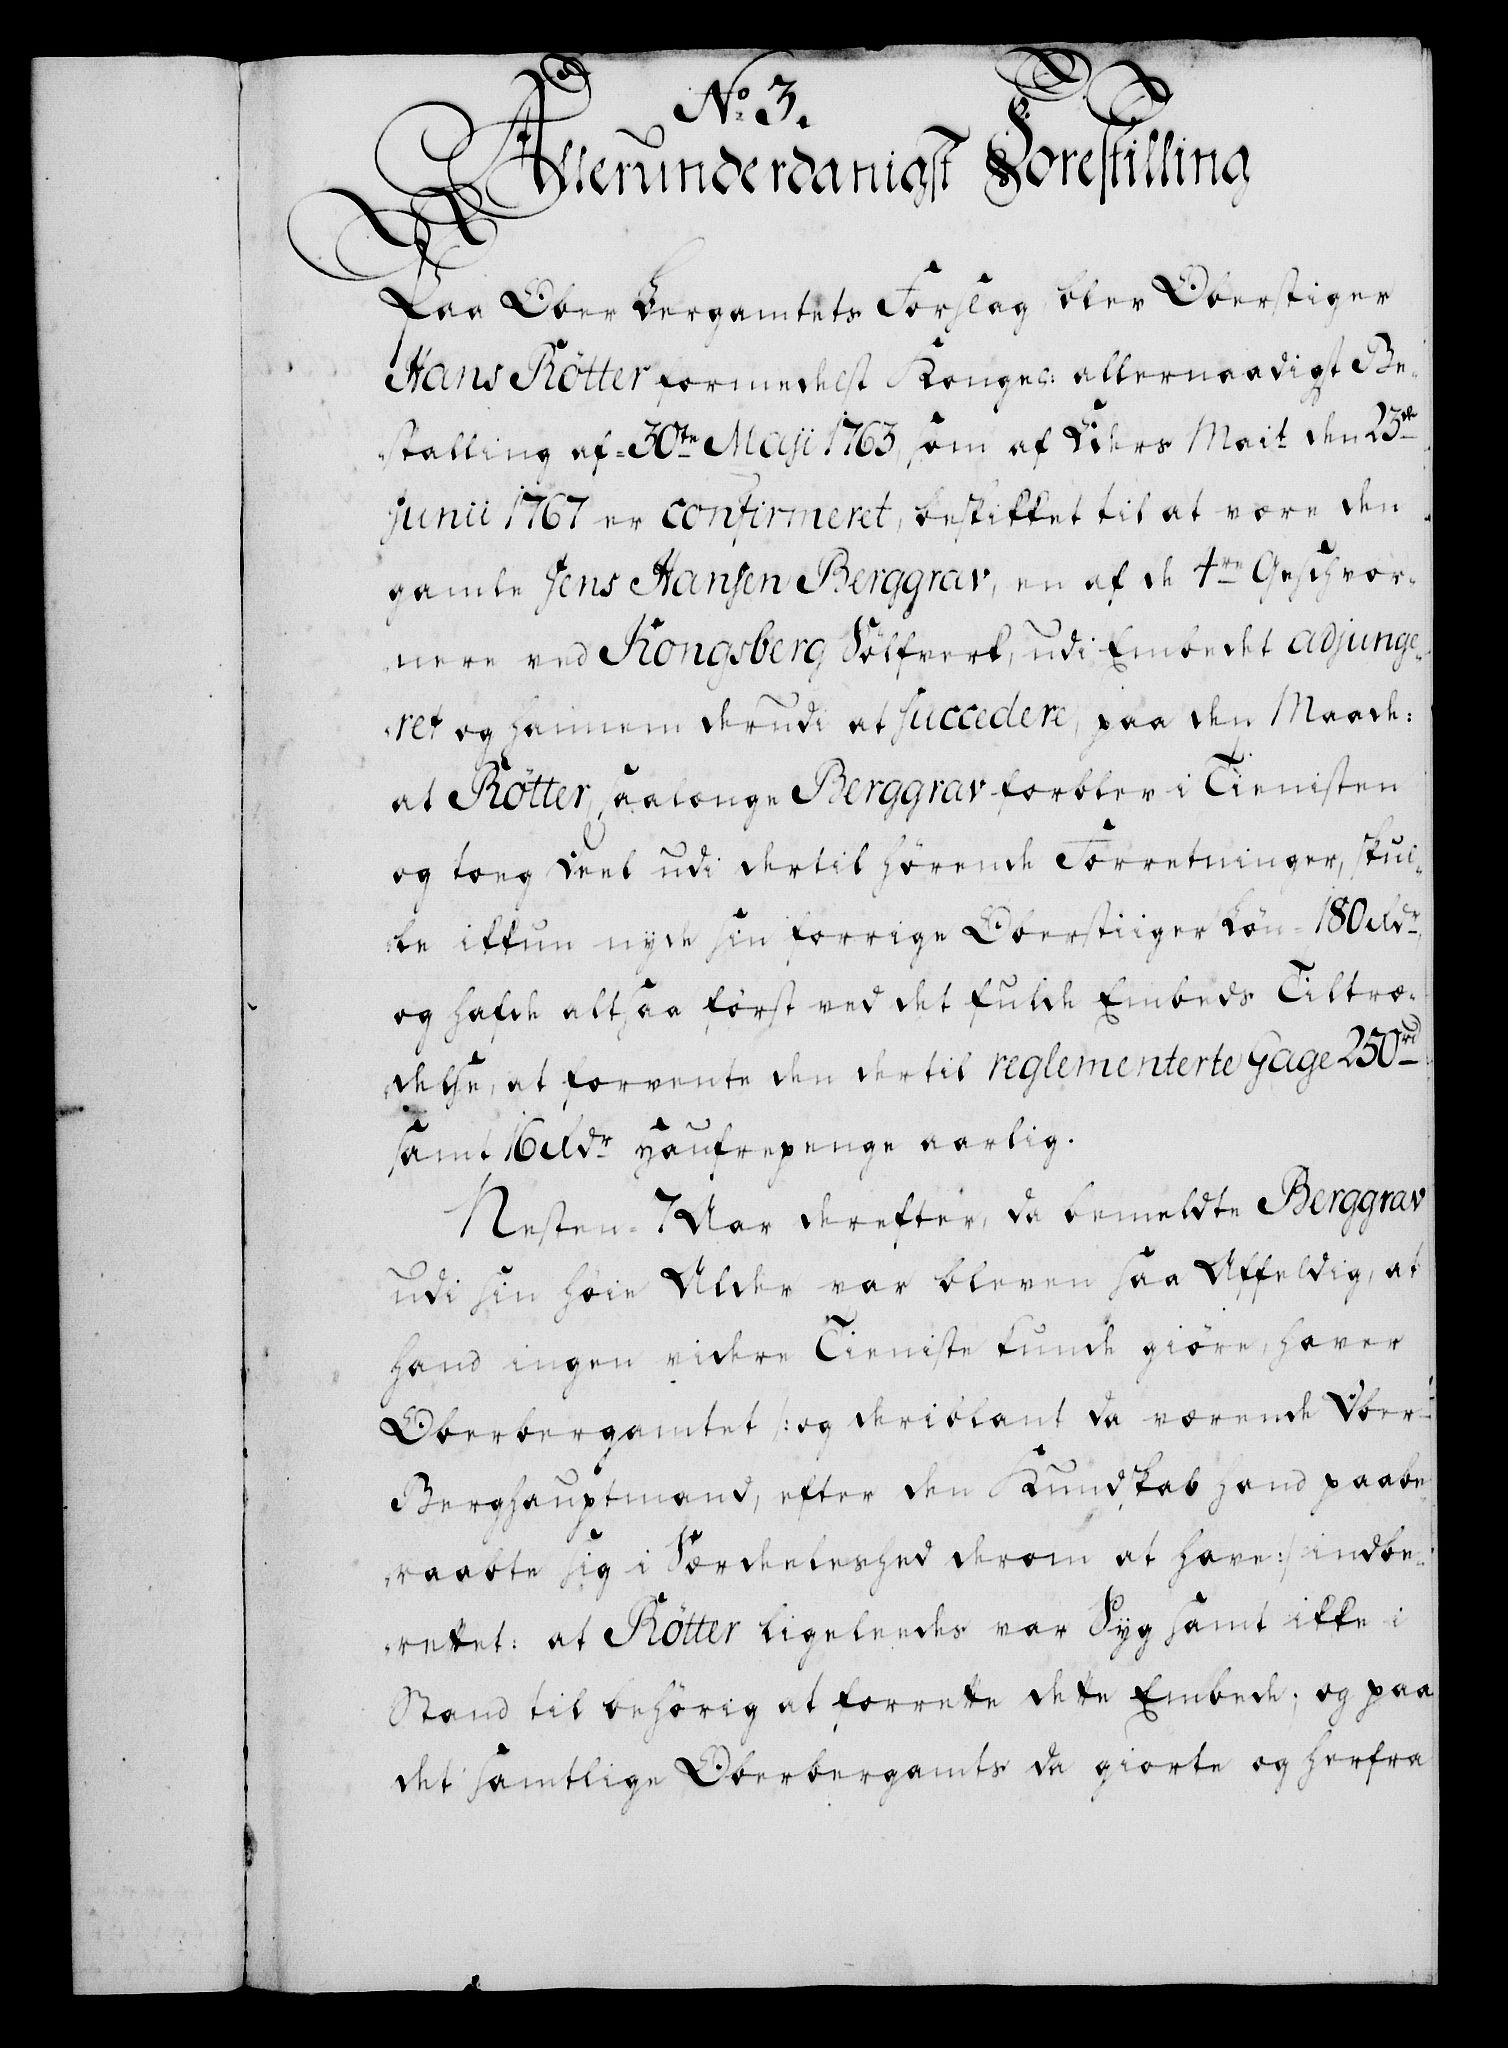 No. 3.
Allerunderdanigst Forestilling
Paa Ober Bergamtets Forslag, blev Oberstiger
Hans Rötter formedelst Kongel: allernaadigst Be-
stalling af 30te Maji 1763, som af Eders Mait den 23de
Junii 1767 er confirmeret, beskikket til at være den
gamle Jens Hansen Berggrav, en af de 4re Geschvor-
nere ved Kongsberg Sølfverk, udi Embedet adjunge-
ret og hannem derudi at succedere, paa den Maade:
at Rötter, saalænge Berggrav forblev i Tienisten
og toeg Deel udi dertil hørende Forretninger, skul-
de ikkun nyde sin forrige Oberstiiger Løn 180 Rdr,
og hafde altsaa først ved det fulde Embeds Tiltræ-
delse, at forvente den dertil reglementerte Gage 250rd
samt 16 Rdr Haufrepenge aarlig.
Nesten 7 Aar derefter, da bemeldte Berggrav
udi sin høie Alder var bleven saa Affeldig, at
hand ingen videre Tieniste kunde giøre, haver
Oberbergamtet /: og deriblant da værende Ober-
Berghauptmand, efter den Kundskab hand paabe
raabte sig i Særdeeleshed derom at have :/ indbe-
rettet: at Rötter ligeleedes var Syg samt ikke i
Stand til behørig at forrette dette Embede; og paa
det samtlige Oberbergamts da giorte og herfra